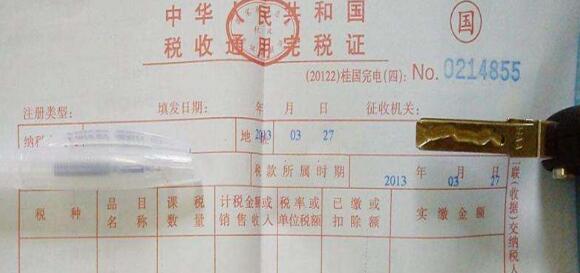 中华人民共和国
国
税收通用完税证
(20122)桂国完电(四): No. 0214855
注册类型: 填发日期: 年 月 日 征收机关:
纳税 地 2013 03 27
税款所属时期 年 月 日
2013 03 27
税种 品目名称 课税数量 计税金额或销售收入 税率或单位税额 已缴或扣除额 实缴金额
联(收据)交纳税人